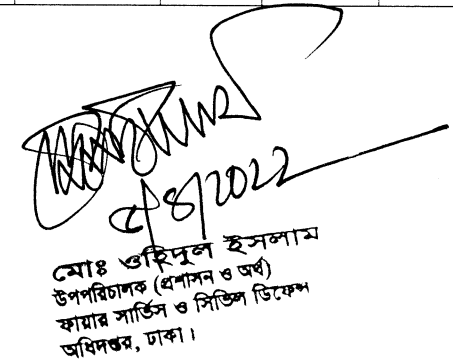 ৫/৪/2022
মোঃ ওহিদুল ইসলাম
উপপরিচালক (প্রশাসন ও অর্থ)
ফায়ার সার্ভিস ও সিভিল ডিফেন্স
অধিদপ্তর, ঢাকা।